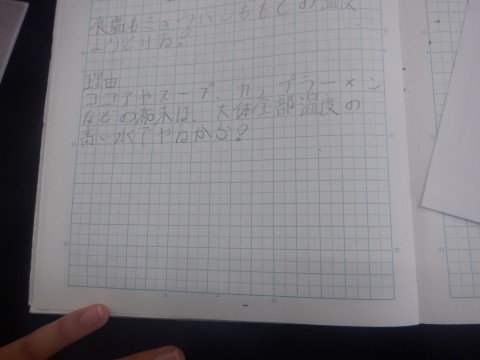 食塩もミョウバンももとの温度
よりとけた?
理由
ココアやスープ、カップラーメン
などの粉末は、大体全部温度の
高い水でやるから?